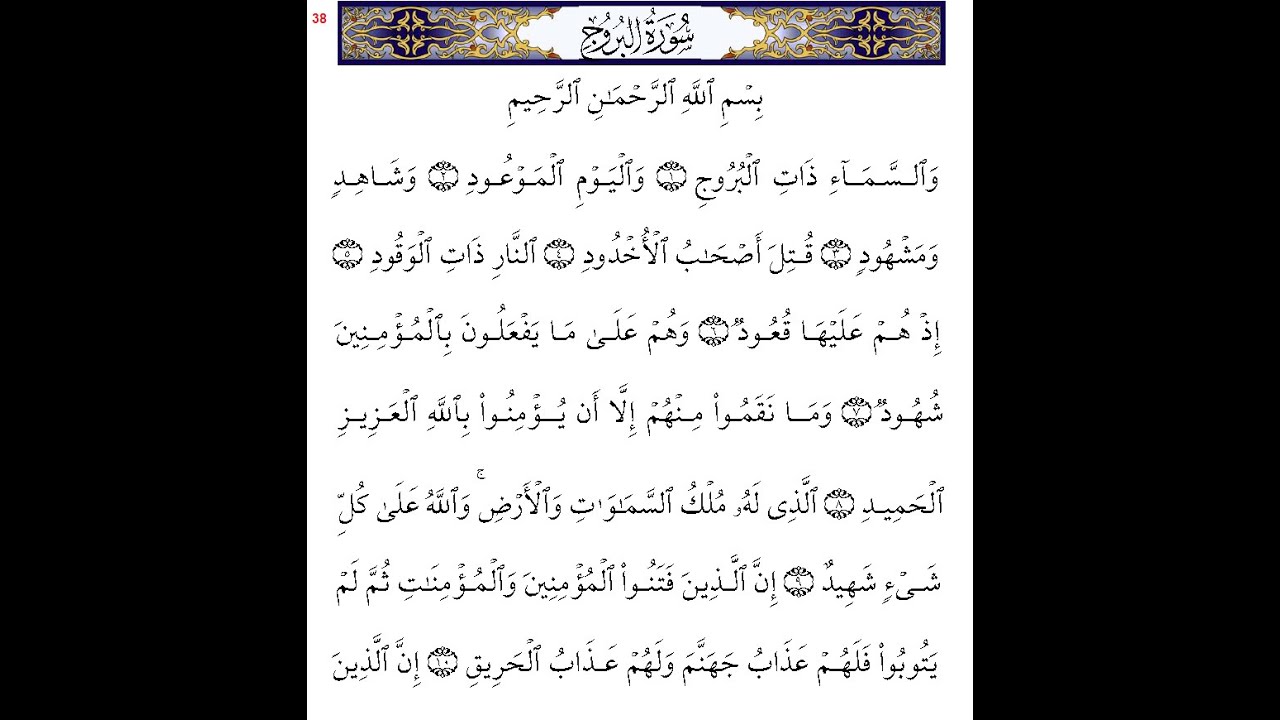 38
سُورَةُ البُرُوجِ
بِسۡمِ ٱللَّهِ ٱلرَّحۡمَـٰنِ ٱلرَّحِيمِ
وَٱلسَّمَاۤءِ ذَاتِ ٱلۡبُرُوجِ ١ وَٱلۡیَوۡمِ ٱلۡمَوۡعُودِ ٢ وَشَاهِدࣲ
وَمَشۡهُودࣲ ٣ قُتِلَ أَصۡحَـٰبُ ٱلۡأُخۡدُودِ ٤ ٱلنَّارِ ذَاتِ ٱلۡوَقُودِ ٥
إِذۡ هُمۡ عَلَیۡهَا قُعُودࣱ ٦ وَهُمۡ عَلَىٰ مَا یَفۡعَلُونَ بِٱلۡمُؤۡمِنِینَ
شُهُودࣱ ٧ وَمَا نَقَمُوا۟ مِنۡهُمۡ إِلَّاۤ أَن یُؤۡمِنُوا۟ بِٱللَّهِ ٱلۡعَزِیزِ
ٱلۡحَمِیدِ ٨ ٱلَّذِی لَهُۥ مُلۡكُ ٱلسَّمَـٰوَ ٰ⁠تِ وَٱلۡأَرۡضِۚ وَٱللَّهُ عَلَىٰ كُلِّ
شَیۡءࣲ شَهِیدٌ ٩ إِنَّ ٱلَّذِینَ فَتَنُوا۟ ٱلۡمُؤۡمِنِینَ وَٱلۡمُؤۡمِنَـٰتِ ثُمَّ لَمۡ
یَتُوبُوا۟ فَلَهُمۡ عَذَابُ جَهَنَّمَ وَلَهُمۡ عَذَابُ ٱلۡحَرِیقِ ١٠ إِنَّ ٱلَّذِینَ